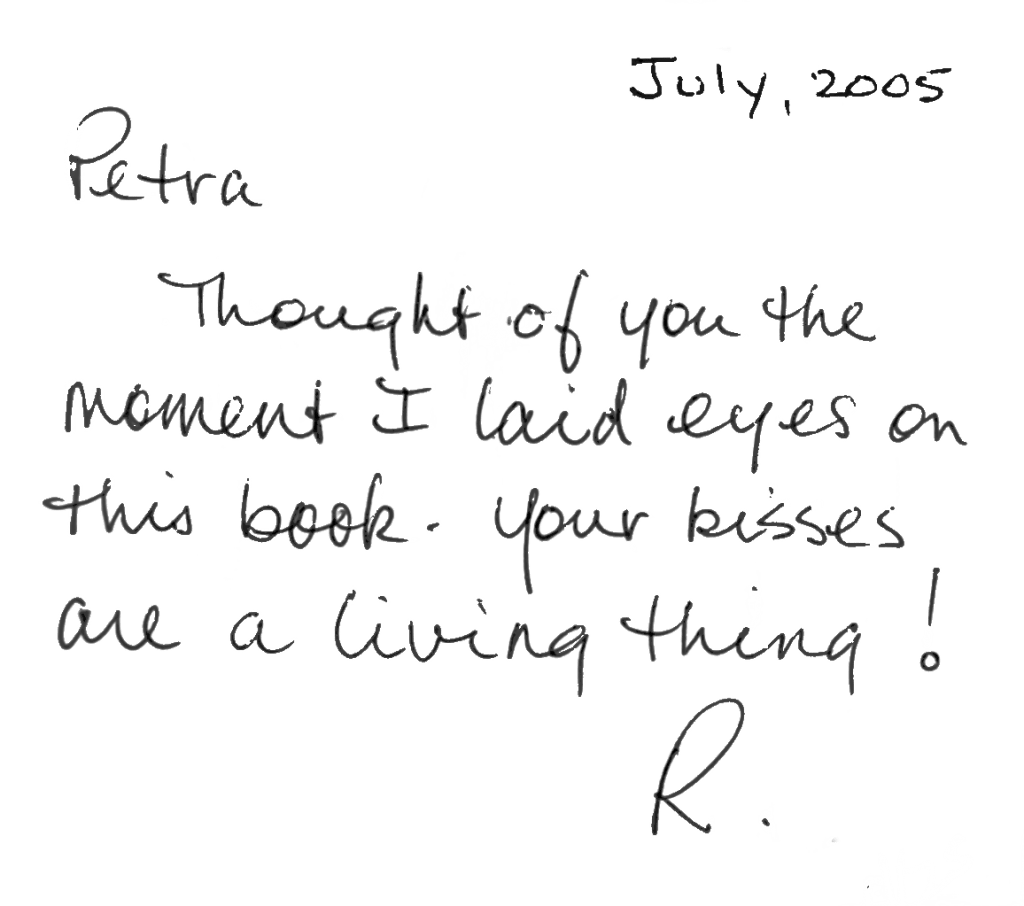 July, 2005
Petra
Thought of you the
moment I laid eyes on
this book. Your kisses
are a living thing!
R.